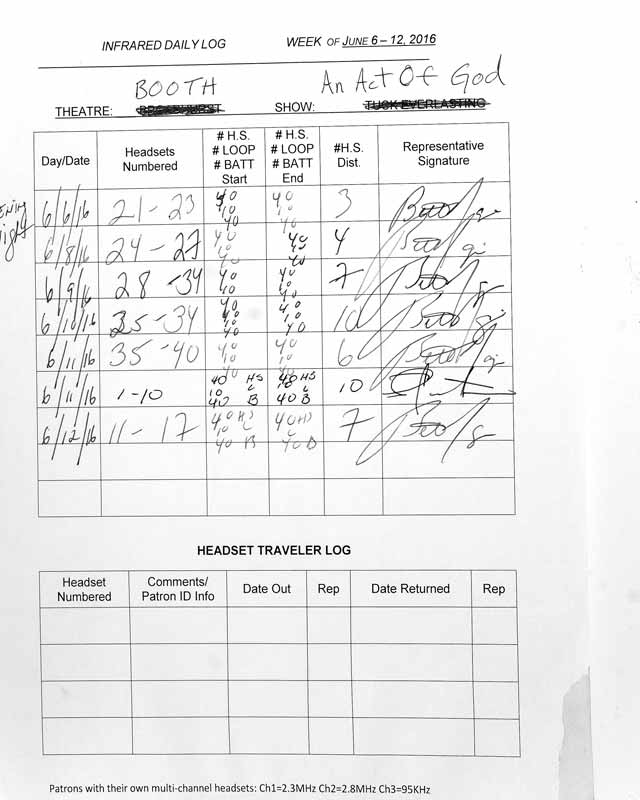 INFRARED DAILY LOG WEEK OF JUNE 6 – 12, 2016
BOOTH An Act Of God
THEATRE: BROADHURST SHOW: TUCK EVERLASTING
Day/Date Headsets Numbered # H.S. # LOOP # BATT Start # H.S. # LOOP # BATT End #H.S. Dist. Representative Signature
6/6/16 21-23 40 10 40 40 10 40 3
6/8/16 24-27 40 10 40 40 40 4
6/9/16 28-34 40 10 40 40 10 40 7
6/10/16 25-34 40 10 40 40 10 40 10
6/11/16 35-40 40 10 40 40 10 40 6
6/11/16 1-10 40 HS 10 L 40 B 40 HS 10 L 40 B 10
6/12/16 11-17 40 HS 10 L 40 B 40 HS L 40 B 7
HEADSET TRAVELER LOG
Headset Numbered Comments/ Patron ID Info Date Out Rep Date Returned Rep
Patrons with their own multi-channel headsets: Ch1=2.3MHz Ch2=2.8MHz Ch3=95KHz